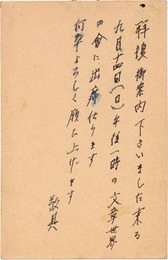 拝復御案内下さいました来る
九月十四日(日)午後一時の文章世界
の会に出席仕ります
何卒よろしく願ひ上げます
敬具